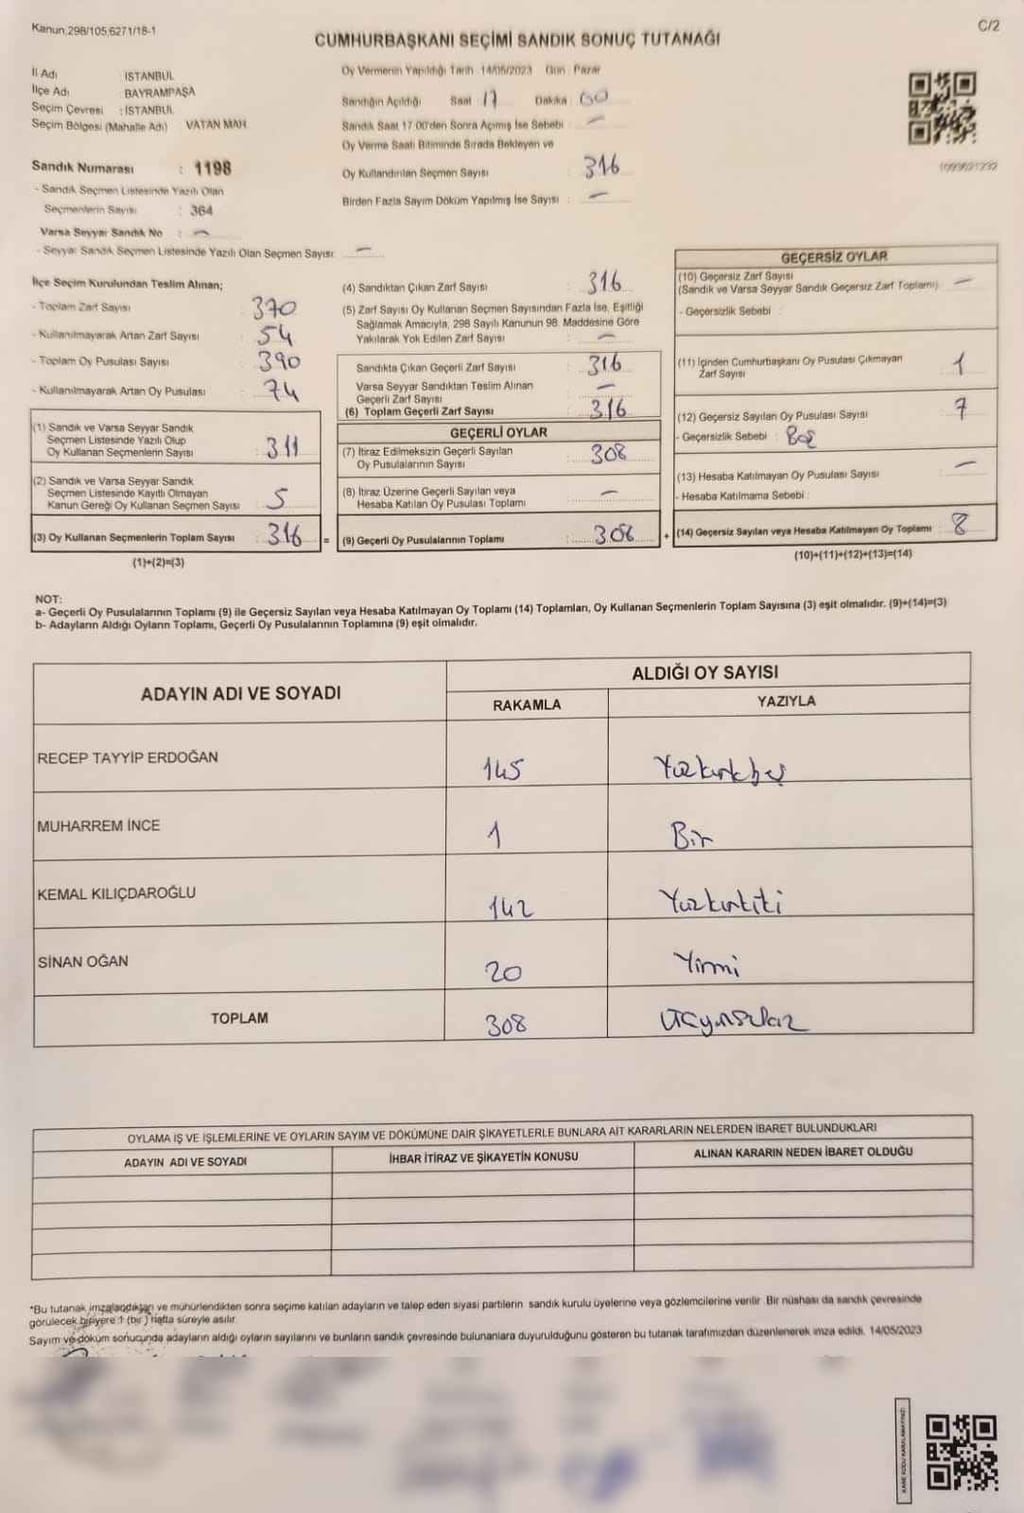 Kanun;298/105;6271/18-1
C/2
CUMHURBAŞKANI SEÇİMİ SANDIK SONUÇ TUTANAĞI
İl Adı : İSTANBUL
İlçe Adı : BAYRAMPAŞA
Seçim Çevresi : İSTANBUL
Seçim Bölgesi (Mahalle Adı) VATAN MAH.
Sandık Numarası : 1198
- Sandık Seçmen Listesinde Yazılı Olan
Seçmenlerin Sayısı : 364
Varsa Seyyar Sandık No : —
- Seyyar Sandık Seçmen Listesinde Yazılı Olan Seçmen Sayısı: —
Oy Vermenin Yapıldığı Tarih 14/05/2023 Gün : Pazar
Sandığın Açıldığı Saat 17 Dakika : 00
Sandık Saat 17:00'den Sonra Açımış İse Sebebi : —
Oy Verme Saati Bitiminde Sırada Bekleyen ve
Oy Kullandırılan Seçmen Sayısı 316
Birden Fazla Sayım Döküm Yapılmış İse Sayısı : —
İlçe Seçim Kurulundan Teslim Alınan;
- Toplam Zarf Sayısı : 370
- Kullanılmayarak Artan Zarf Sayısı : 54
- Toplam Oy Pusulası Sayısı : 390
- Kullanılmayarak Artan Oy Pusulası : 74
(1) Sandık ve Varsa Seyyar Sandık
Seçmen Listesinde Yazılı Olup
Oy Kullanan Seçmenlerin Sayısı : 311
(2) Sandık ve Varsa Seyyar Sandık
Seçmen Listesinde Kayıtlı Olmayan
Kanun Gereği Oy Kullanan Seçmen Sayısı : 5
(3) Oy Kullanan Seçmenlerin Toplam Sayısı : 316 =
(1)+(2)=(3)
(4) Sandıktan Çıkan Zarf Sayısı : 316
(5) Zarf Sayısı Oy Kullanan Seçmen Sayısından Fazla İse, Eşitliği
Sağlamak Amacıyla, 298 Sayılı Kanunun 98. Maddesine Göre
Yakılarak Yok Edilen Zarf Sayısı : —
Sandıkta Çıkan Geçerli Zarf Sayısı : 316
Varsa Seyyar Sandıktan Teslim Alınan
Geçerli Zarf Sayısı : —
(6) Toplam Geçerli Zarf Sayısı : 316
GEÇERLİ OYLAR
(7) İtiraz Edilmeksizin Geçerli Sayılan
Oy Pusulalarının Sayısı : 308
(8) İtiraz Üzerine Geçerli Sayılan veya
Hesaba Katılan Oy Pusulası Toplamı : —
(9) Geçerli Oy Pusulalarının Toplamı : 308 +
GEÇERSİZ OYLAR
(10) Geçersiz Zarf Sayısı
(Sandık ve Varsa Seyyar Sandık Geçersiz Zarf Toplamı) : —
- Geçersizlik Sebebi :
(11) İçinden Cumhurbaşkanı Oy Pusulası Çıkmayan
Zarf Sayısı 1
(12) Geçersiz Sayılan Oy Pusulası Sayısı 7
- Geçersizlik Sebebi : Boş
(13) Hesaba Katılmayan Oy Pusulası Sayısı —
- Hesaba Katılmama Sebebi :
(14) Geçersiz Sayılan veya Hesaba Katılmayan Oy Toplamı : 8
(10)+(11)+(12)+(13)=(14)
NOT:
a- Geçerli Oy Pusulalarının Toplamı (9) ile Geçersiz Sayılan veya Hesaba Katılmayan Oy Toplamı (14) Toplamları, Oy Kullanan Seçmenlerin Toplam Sayısına (3) eşit olmalıdır. (9)+(14)=(3)
b- Adayların Aldığı Oyların Toplamı, Geçerli Oy Pusulalarının Toplamına (9) eşit olmalıdır.
ADAYIN ADI VE SOYADI ALDIĞI OY SAYISI
RAKAMLA YAZIYLA
RECEP TAYYİP ERDOĞAN 145 Yüzkırkbeş
MUHARREM İNCE 1 Bir
KEMAL KILIÇDAROĞLU 142 Yüzkırkiki
SİNAN OĞAN 20 Yirmi
TOPLAM 308
OYLAMA İŞ VE İŞLEMLERİNE VE OYLARIN SAYIM VE DÖKÜMÜNE DAİR ŞİKAYETLERLE BUNLARA AİT KARARLARIN NELERDEN İBARET BULUNDUKLARI
ADAYIN ADI VE SOYADI İHBAR İTİRAZ VE ŞİKAYETİN KONUSU ALINAN KARARIN NEDEN İBARET OLDUĞU
*Bu tutanak imzalandıktan ve mühürlendikten sonra seçime katılan adayların ve talep eden siyasi partilerin sandık kurulu üyelerine veya gözlemcilerine verilir. Bir nüshası da sandık çevresinde
görülecek bir yere 1 (bir) hafta süreyle asılır.
Sayım ve döküm sonucunda adayların aldığı oyların sayılarını ve bunların sandık çevresinde bulunanlara duyurulduğunu gösteren bu tutanak tarafımızdan düzenlenerek imza edildi. 14/05/2023